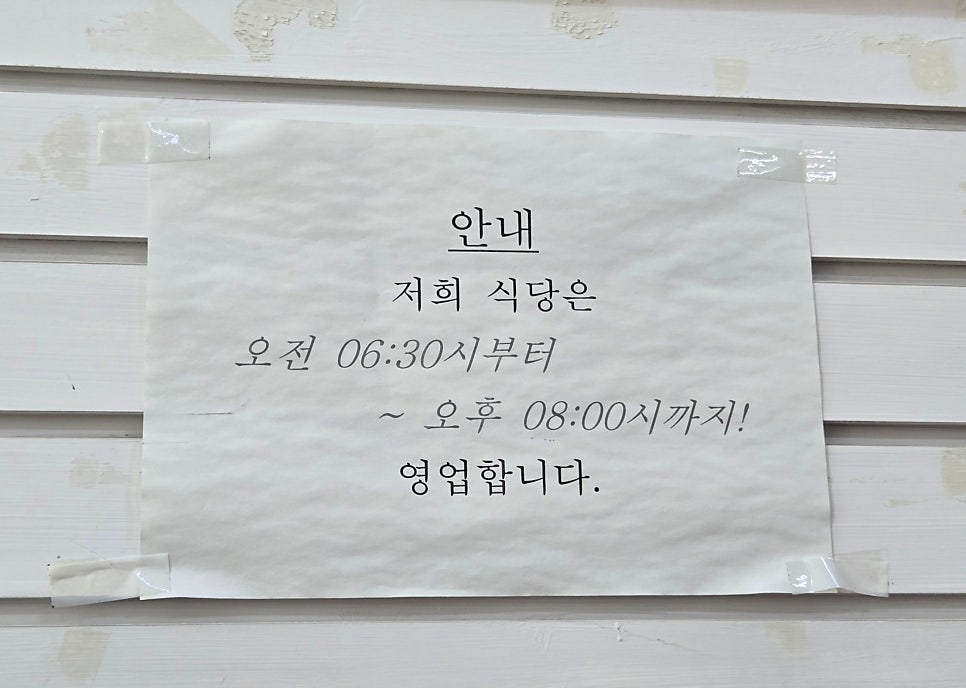 안내
저희 식당은
오전 06:30시부터
~ 오후 08:00시까지!
영업합니다.